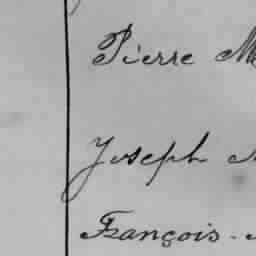 Pierre M
Joseph
François